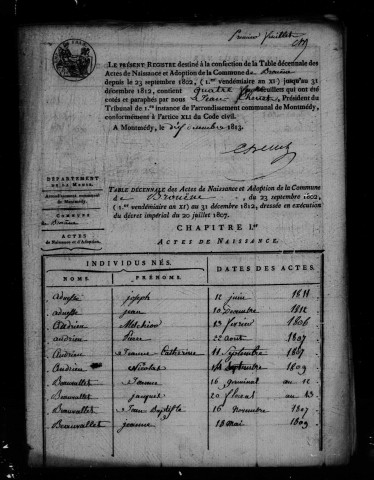 Premier feuillet
LE PRÉSENT REGISTRE destiné à la confection de la Table décennale des
Actes de Naissance et Adoption de la Commune de Brouënne
depuis le 23 septembre 1802, (1.er vendémiaire an XI) jusqu'au 31
décembre 1812, contient quatre feuillets qui ont été
cotés et paraphés par nous Jean Président du
Tribunal de 1.re instance de l'arrondissement communal de Montmédy,
conformément à l'artice XLI du Code civil.
A MONTMÉDY, le dix 1813.
DÉPARTEMENT
DE LA MEUSE.
Arrondissement communal
de Montmédy.
COMMUNE
de Brouënne
ACTES
de Naissance et d'Adoption.
TABLE DÉCENNALE des Actes de Naissance et Adoption de la Commune
de Brouënne, du 23 septembre 1802,
(1.er vendémiaire an XI) au 31 décembre 1812, dressée en exécution
du décret impérial du 20 juillet 1807.
CHAPITRE I.er
ACTES DE NAISSANCE.
INDIVIDUS NÉS. DATES DES ACTES.
NOMS. PRÉNOMS.
joseph 12 juin 1811
jean 10 Decembre 1812
Andrien Melchior 23 fevrier 1806
andrien 22 aout 1807
Andrien Jeanne Catherine 11 Septembre 1807
Andrien Nicolas 14 Septembre 1809
Beauvallet Jeanne 16 germinal au 12
Beauvallet jacques 20 floreal au 13
Beauvallet Jean Baptiste 16 Novembre 1807
Beauvallet jeanne 18 mai 1809